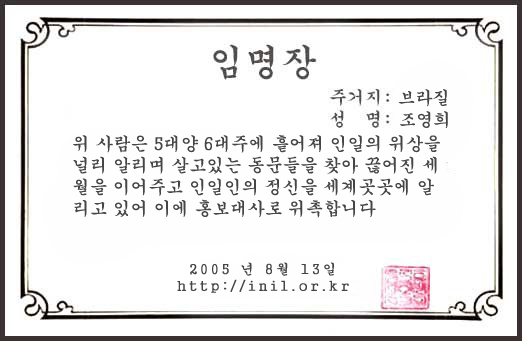 임명장
주거지: 브라질
성 명: 조영희
위 사람은 5대양 6대주에 흩어져 인일의 위상을
널리 알리며 살고있는 동문들을 찾아 끊어진 세
월을 이어주고 인일인의 정신을 세계곳곳에 알
리고 있어 이에 홍보대사로 위촉합니다
2005 년 8월 13일
http://inil.or.kr